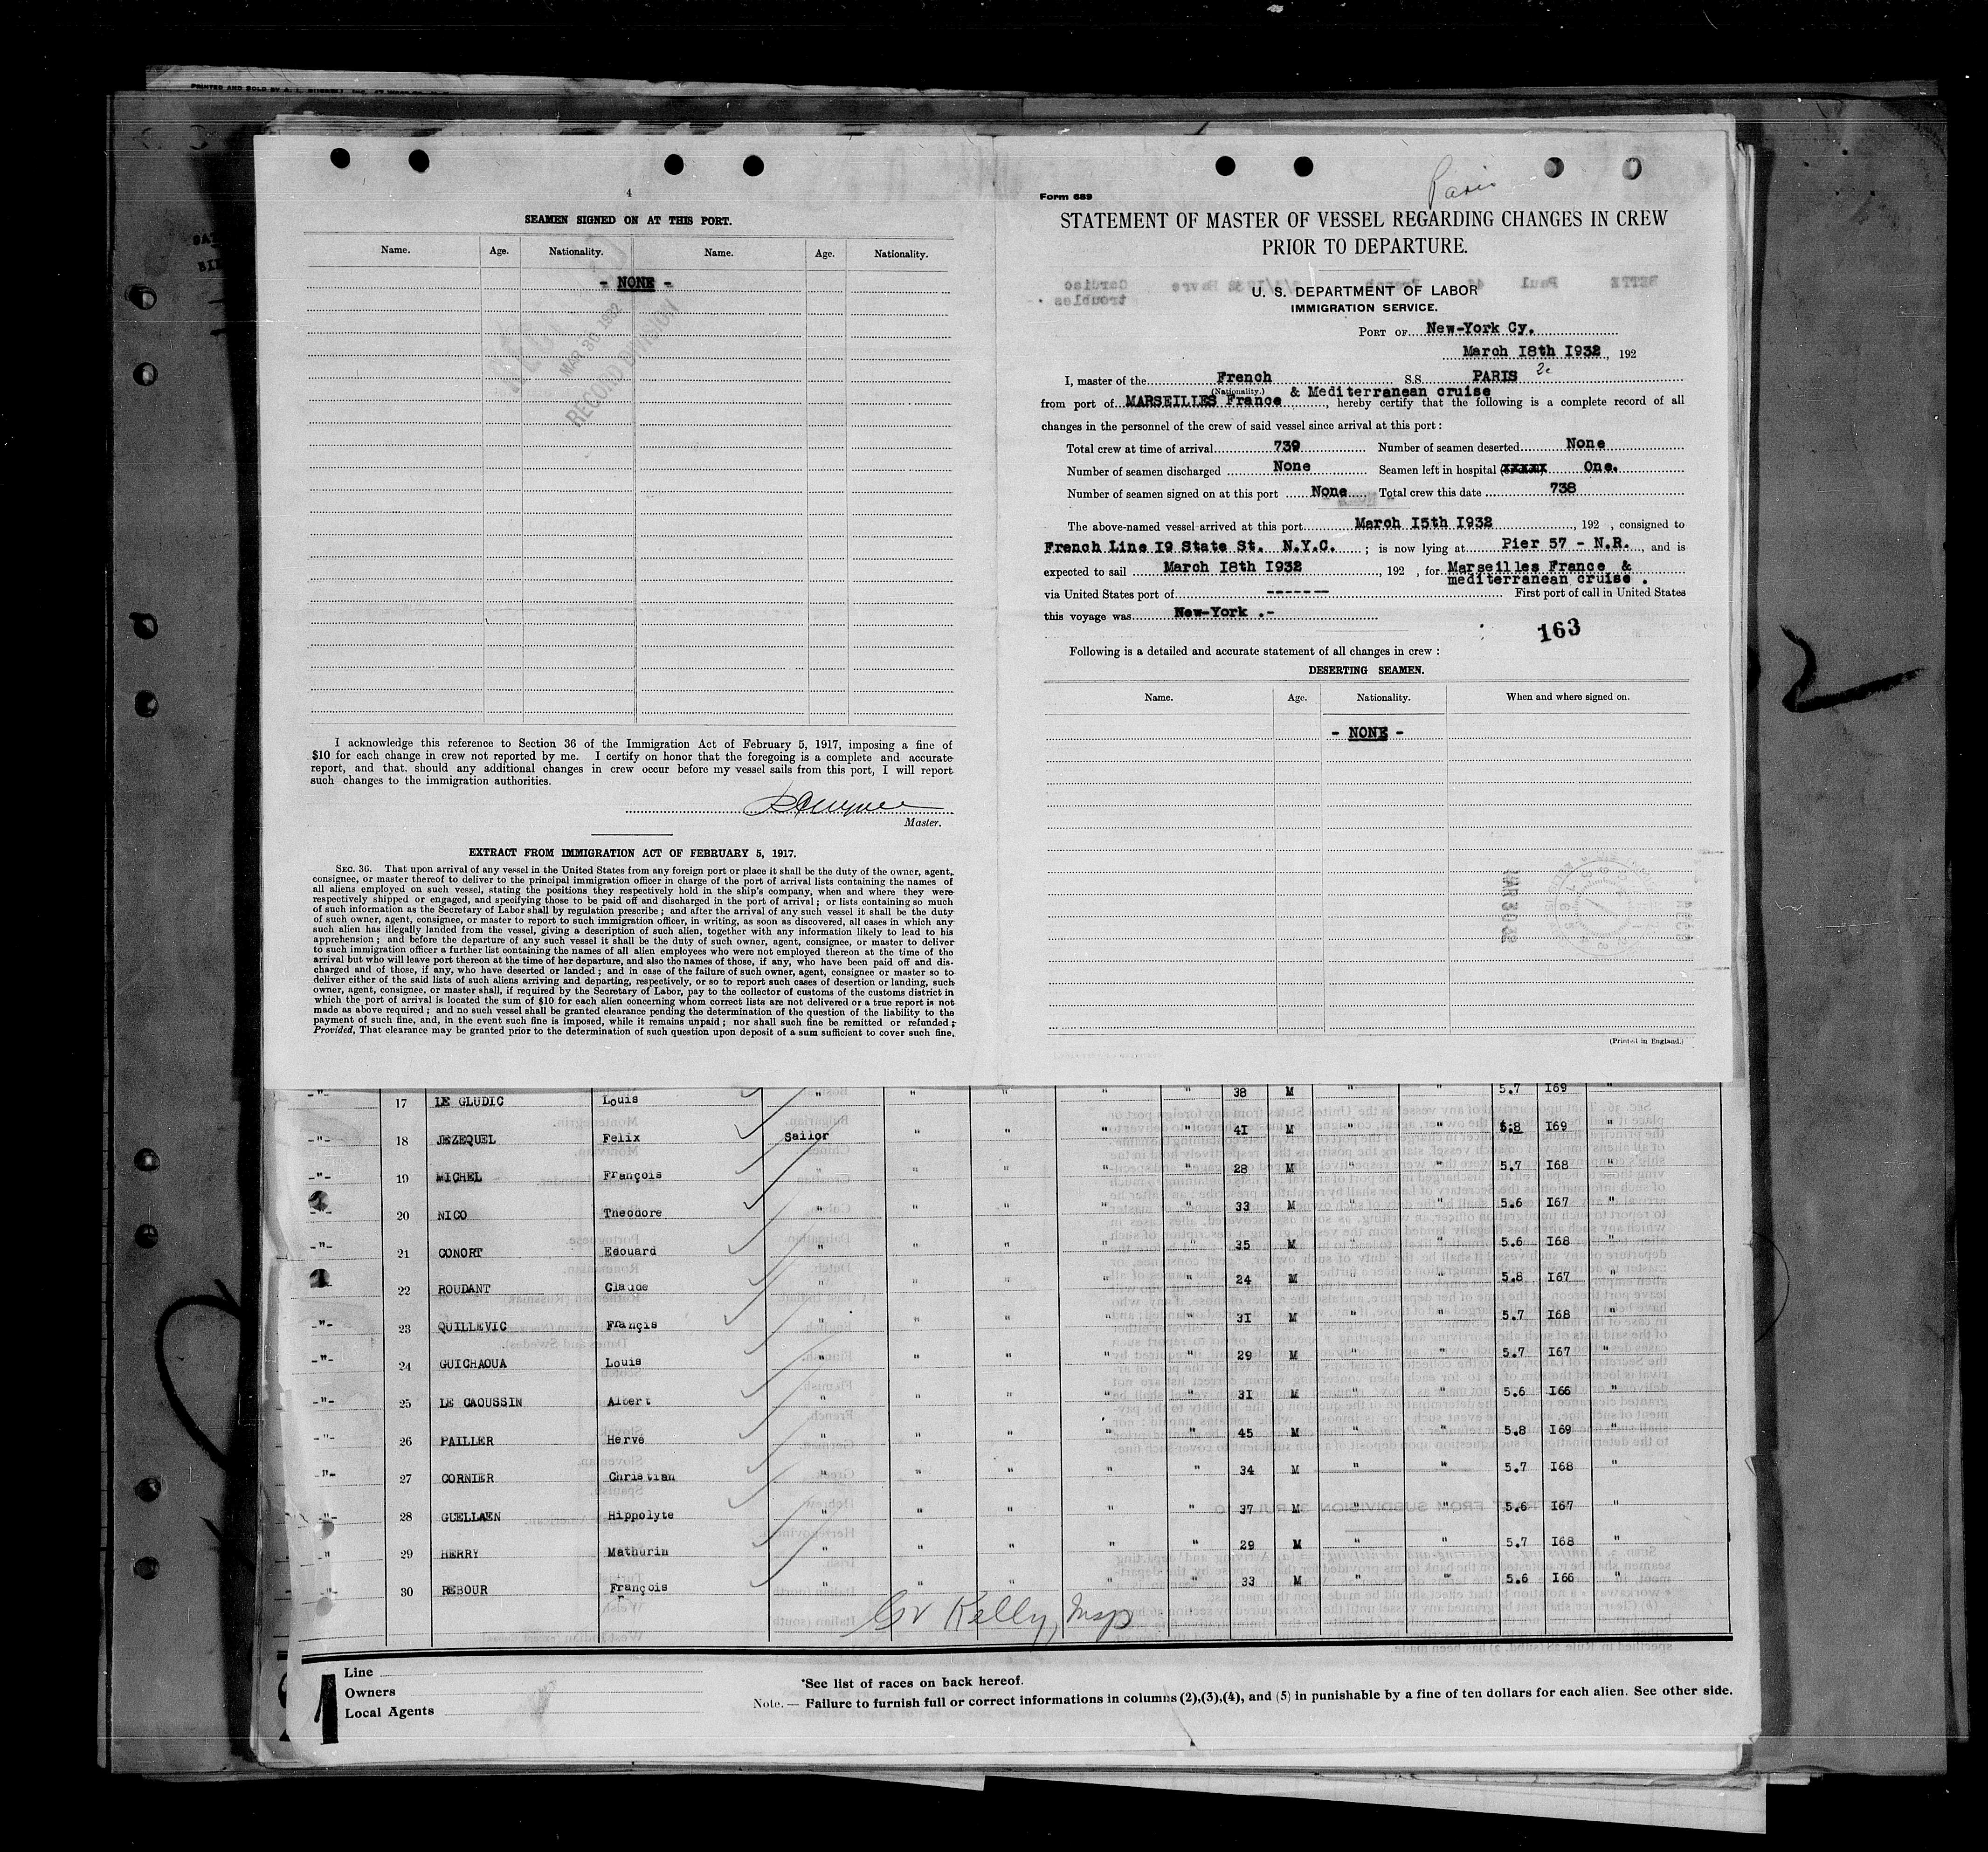 PRINTED AND SOLD BY
4
SEAMEN SIGNED ON AT THIS PORT.
Name. Age. Nationality. Name. Age. Nationality.
- NONE -
MAR 30 1932
RECORD DIVISION
I acknowledge this reference to Section 36 of the Immigration Act of February 5, 1917, imposing a fine of
$10 for each change in crew not reported by me. I certify on honor that the foregoing is a complete and accurate
report, and that should any additional changes in crew occur before my vessel sails from this port, I will report
such changes to the immigration authorities.
Master.
EXTRACT FROM IMMIGRATION ACT OF FEBRUARY 5, 1917.
SEC. 36. That upon arrival of any vessel in the United States from any foreign port or place it shall be the duty of the owner, agent,
consignee, or master thereof to deliver to the principal immigration officer in charge of the port of arrival lists containing the names of
all aliens employed on such vessel, stating the positions they respectively hold in the ship's company, when and where they were
respectively shipped or engaged, and specifying those to be paid off and discharged in the port of arrival; or lists containing so much
of such information as the Secretary of Labor shall by regulation prescribe; and after the arrival of any such vessel it shall be the duty
of such owner, agent, consignee, or master to report to such immigration officer, in writing, as soon as discovered, all cases in which any
such alien has illegally landed from the vessel, giving a description of such alien, together with any information likely to lead to his
apprehension; and before the departure of any such vessel it shall be the duty of such owner, agent, consignee, or master to deliver
to such immigration officer a further list containing the names of all alien employees who were not employed thereon at the time of the
arrival but who will leave port thereon at the time of her departure, and also the names of those, if any, who have been paid off and dis-
charged and of those, if any, who have deserted or landed; and in case of the failure of such owner, agent, consignee or master so to
deliver either of the said lists of such aliens arriving and departing, respectively, or so to report such cases of desertion or landing, such
owner, agent, consignee, or master shall, if required by the Secretary of Labor, pay to the collector of customs of the customs district in
which the port of arrival is located the sum of $10 for each alien concerning whom correct lists are not delivered or a true report is not
made as above required; and no such vessel shall be granted clearance pending the determination of the question of the liability to the
payment of such fine, and, in the event such fine is imposed, while it remains unpaid; nor shall such fine be remitted or refunded;
Provided, That clearance may be granted prior to the determination of such question upon deposit of a sum sufficient to cover such fine.
Paris
Form 689
STATEMENT OF MASTER OF VESSEL REGARDING CHANGES IN CREW
PRIOR TO DEPARTURE.
U. S. DEPARTMENT OF LABOR
IMMIGRATION SERVICE.
PORT OF New-York Cy.
March I8th I932, 192
I, master of the French S.S. PARIS
(Nationality.) & Mediterranean cruise
from port of MARSEILLES France, hereby certify that the following is a complete record of all
changes in the personnel of the crew of said vessel since arrival at this port:
Total crew at time of arrival 739 Number of seamen deserted None
Number of seamen discharged None Seamen left in hospital (xxxxx One.
Number of seamen signed on at this port None Total crew this date 738
The above-named vessel arrived at this port March I5th I932, 192 , consigned to
French Line I9 State St. N.Y.C. ; is now lying at Pier 57 - N.R., and is
expected to sail March I8th I932, 192 , for Marseilles France &
mediterranean cruise .
via United States port of ------- First port of call in United States
this voyage was New-York .-
163
Following is a detailed and accurate statement of all changes in crew:
DESERTING SEAMEN.
Name. Age. Nationality. When and where signed on.
- NONE -
(Printed in England.)
-"- 17 LE GLUDIC Louis " " " " " 38 M " " 5.7 I69 "
-"- 18 JEZEQUEL Felix Sailor " " " " 41 M " " 5.8 I69 "
-"- 19 MICHEL François " " " " " 28 M " " 5.7 I68 "
-"- 20 NICO Theodore " " " " " 33 M " " 5.6 I67 "
-"- 21 CONORT Edouard " " " " " 35 M " " 5.6 I68 "
22 ROUDANT Claude " " " " " 24 M " " 5.8 I67 "
-"- 23 QUILLEVIC Françis " " " " " 3I M " " 5.7 I68 "
-"- 24 GUICHAOUA Louis " " " " " 29 M " " 5.7 I67 "
-"- 25 LE CAOUSSIN Albert " " " " " 3I M " " 5.6 I66 "
-"- 26 PAILLER Hervé " " " " " 45 M " " 5.8 I69 "
-"- 27 CORNIER Christian " " " " " 34 M " " 5.7 I68 "
-"- 28 GUELLAEN Hippolyte " " " " " 37 M " " 5.6 I67 "
-" 29 HERRY Mathurin " " " " " 29 M " " 5.7 I68 "
-"- 30 REBOUR François " " " " " 33 M " " 5.6 I66 "
Kelly, Insp
1
Line
Owners
Local Agents
*See list of races on back hereof.
Note. — Failure to furnish full or correct informations in columns (2),(3),(4), and (5) in punishable by a fine of ten dollars for each alien. See other side.